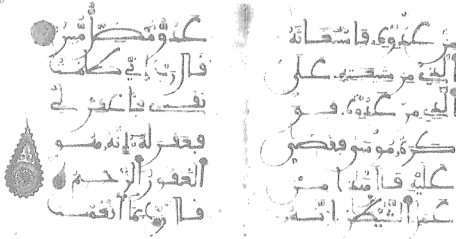 من عدوه فاستغاثه
الذي من شيعته على
الذي من عدوه فو
كزه موسى فقضى
عليه قال هذا من
عمل الشيطن انه
عدو مضل مبين
قال رب اني ظلمت
نفسي فاغفر لي
فغفر له انه هو
الغفور الرحيم
قال رب بما انعمت